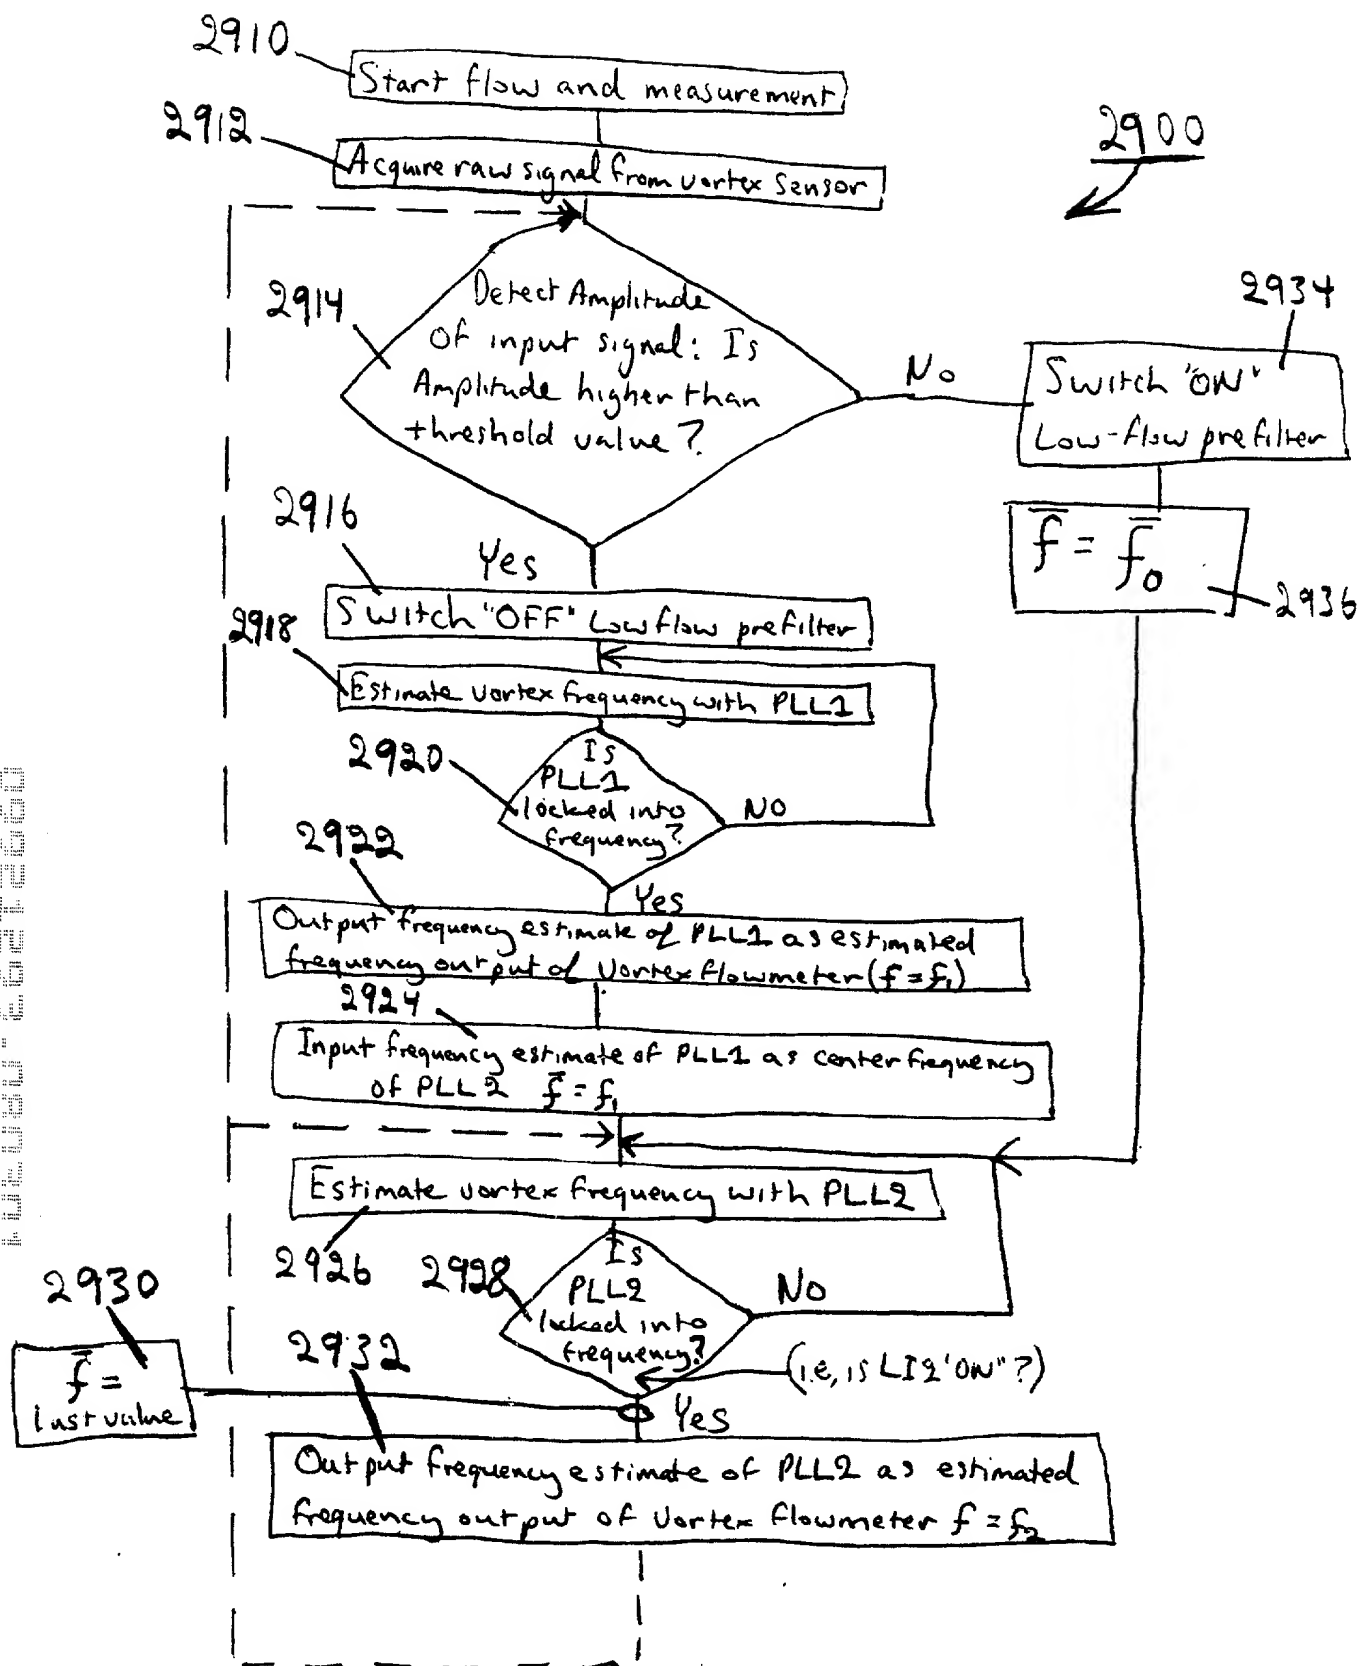 2910
Start flow and measurement
2912
Acquire raw signal from vortex sensor
2900
2914
Detect Amplitude
of input signal: Is
Amplitude higher than
threshold value?
No
2934
Switch "ON"
Low-flow prefilter
f̄ = f̄₀
2936
2916
Yes
Switch "OFF" Low flow prefilter
2918
Estimate vortex frequency with PLL1
2920
Is
PLL1
locked into
frequency?
NO
2922
Yes
Output frequency estimate of PLL1 as estimated
frequency output of Vortex flowmeter (f = f₁)
2924
Input frequency estimate of PLL1 as center frequency
of PLL2 f̄ = f₁
Estimate vortex frequency with PLL2
2926
2928
Is
PLL2
locked into
frequency?
No
(i.e, is LI2 'ON"?)
2930
f̄ =
last value
2932
Yes
Output frequency estimate of PLL2 as estimated
frequency output of Vortex flowmeter f = f₂